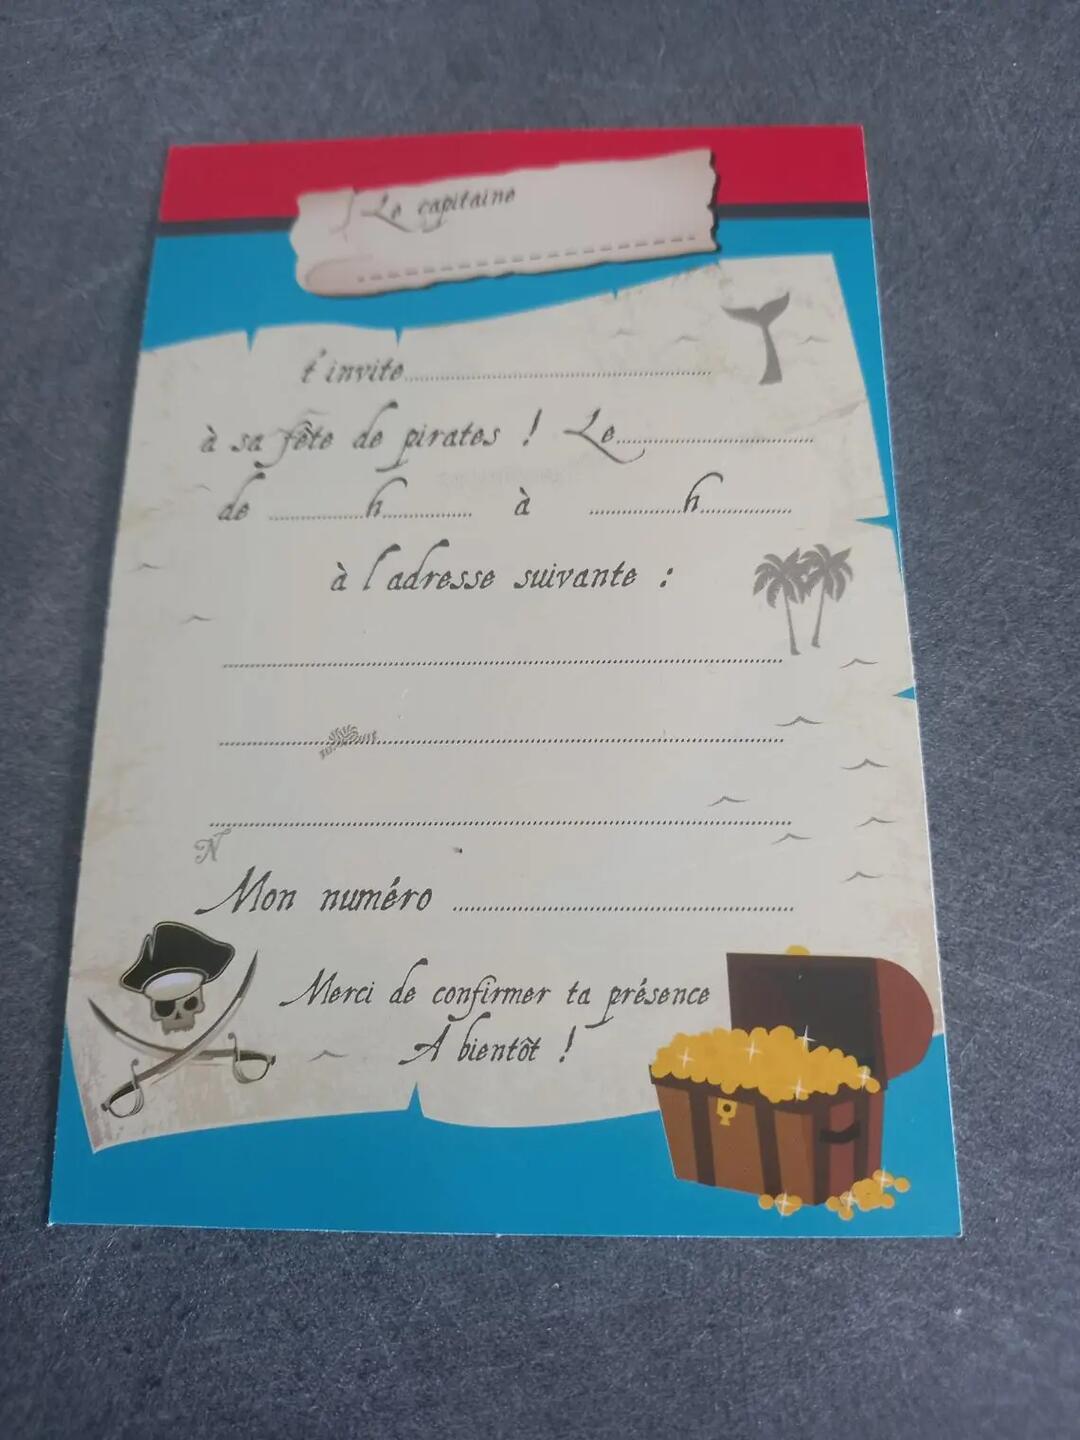 Le capitaine
t'invite
à sa fête de pirates ! Le
de h à h
à l'adresse suivante :
N
Mon numéro
Merci de confirmer ta présence
A bientôt !